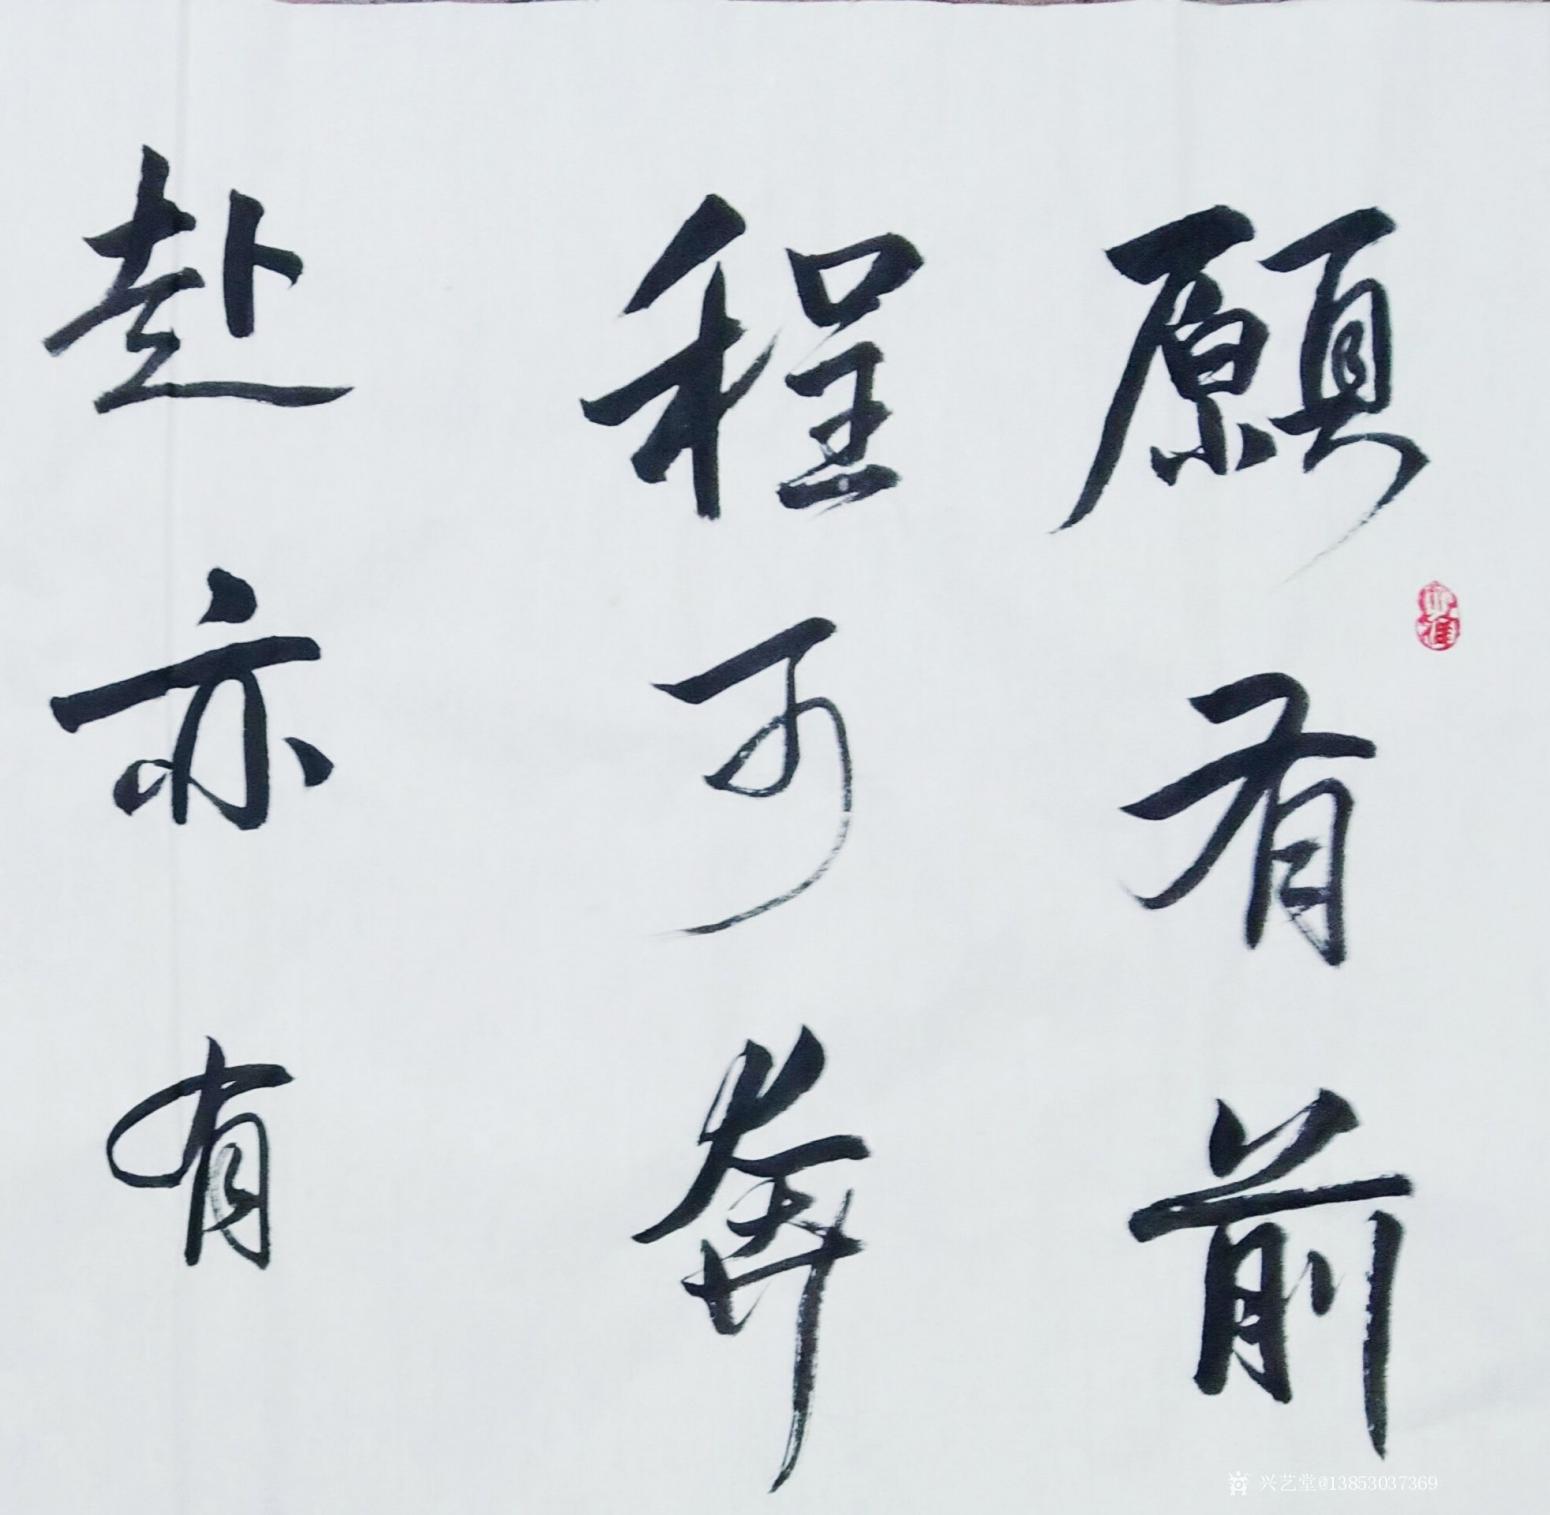 願有前
程可奔
赴亦有
兴艺堂@13853037369